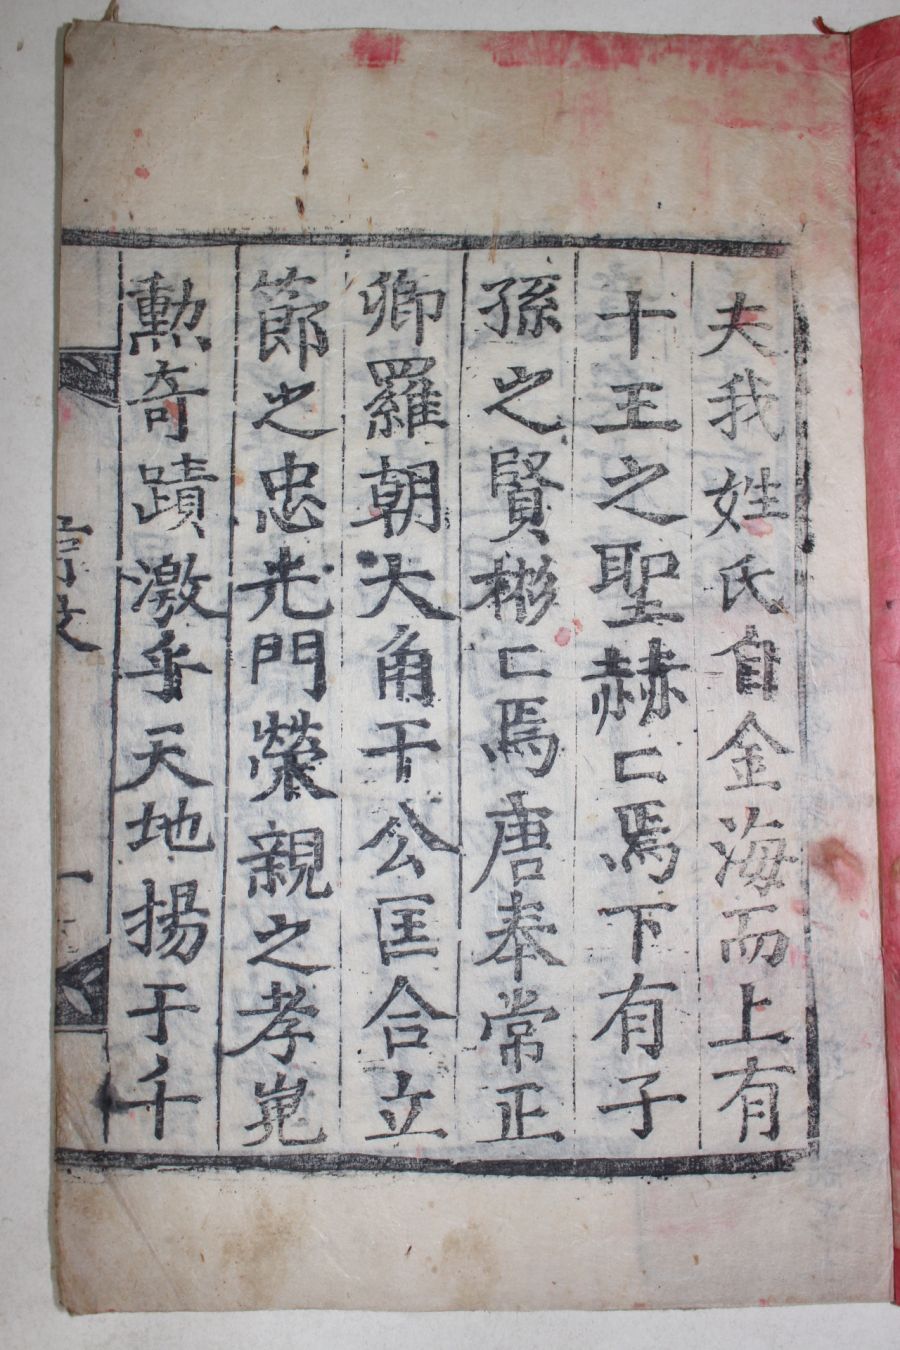 夫我姓氏自金海而上有
十王之聖赫〻焉下有子
孫之賢彬〻焉唐奉常正
卿羅朝大角干公匡合立
節之忠光門榮親之孝嵬
勲奇蹟激乎天地揚于千
一